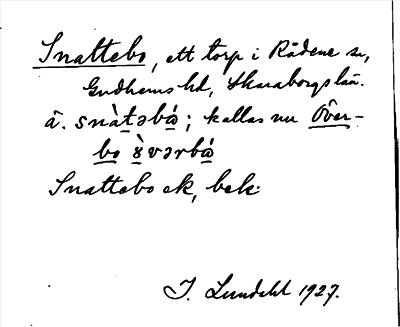 Snattebo, ett torp i Rådene sn,
Gudhems hd, Skaraborgs län.
ä. snàtəbá; kallas nu Över-
bo ɤ̀vərbá
Snattebo ek, bek.
I. Lundahl 1927.